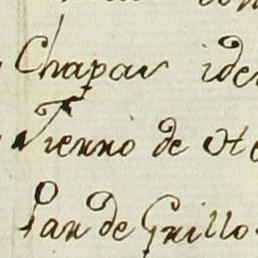 Chapas ide
Fierrò de ote
Par de Grillo